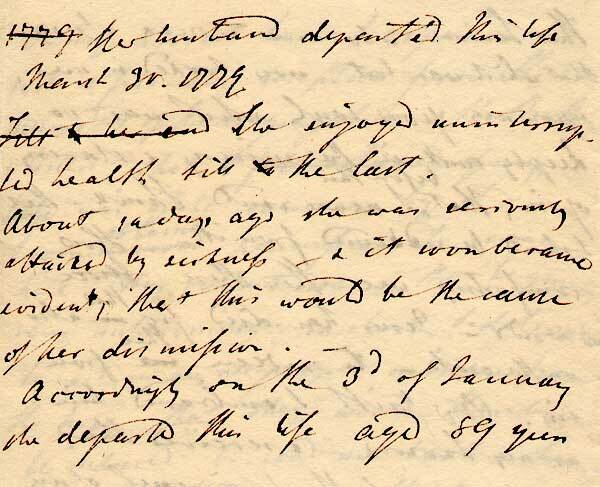 1779 Her husband departed this life
March 30. 1779
Till to her end She enjoyed uninterrup-
ted health till to the last.
About 10 days ago she was seriously
attacked by sickness – & it soon became
evident, that this would be the cause
of her dismission. –
Accordingly on the 3d of January
she departed this life aged 89 years